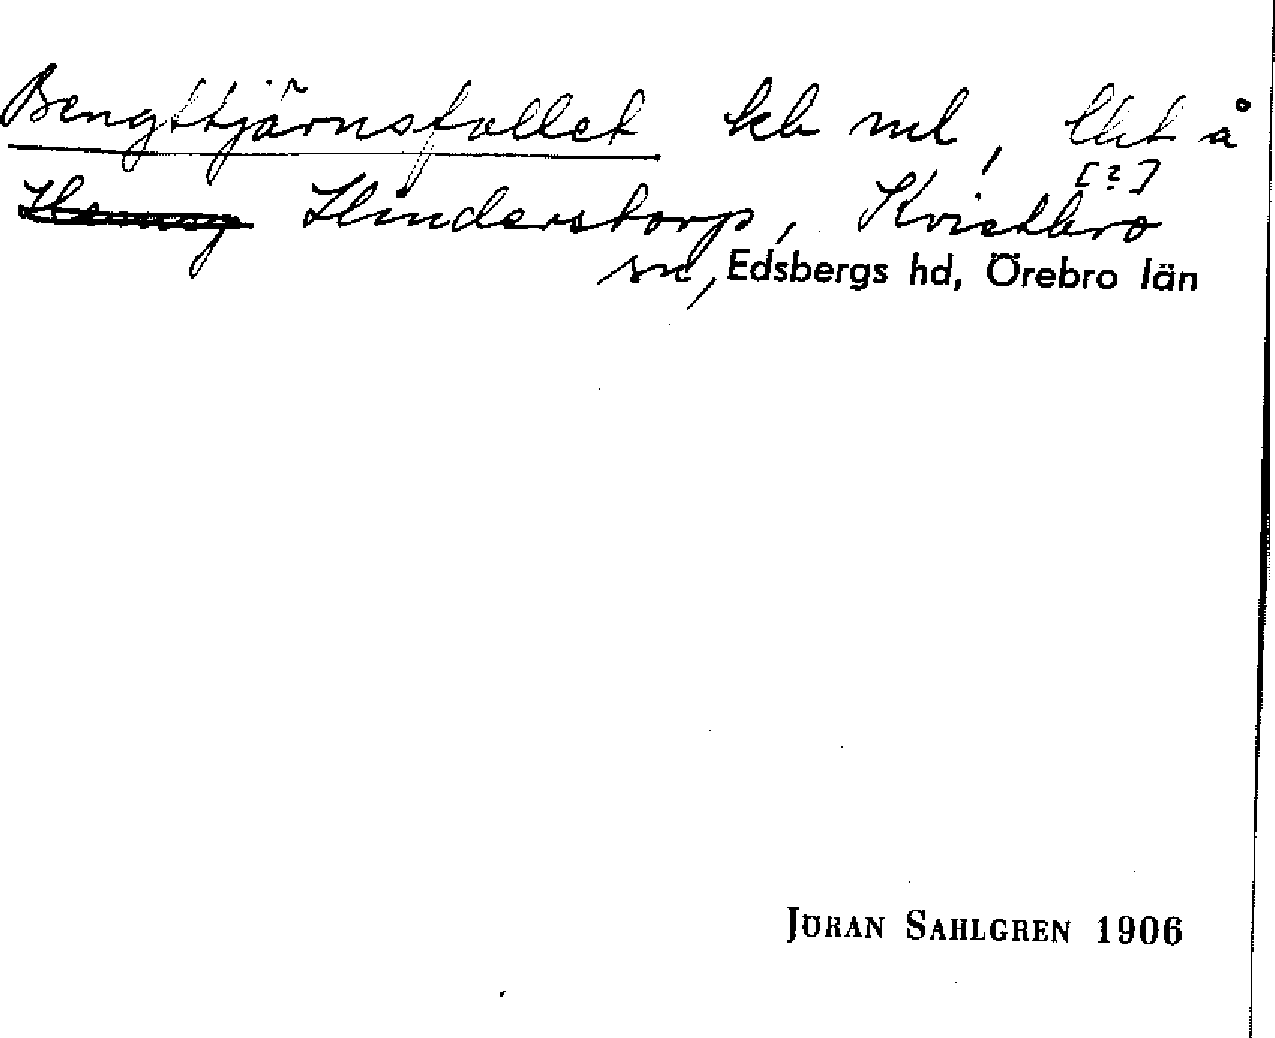 Bengttjärnsfallet kb ml, å
[?]
Hinderstorp, Kvistbro
sn, Edsbergs hd, Örebro län
JÖRAN SAHLGREN 1906